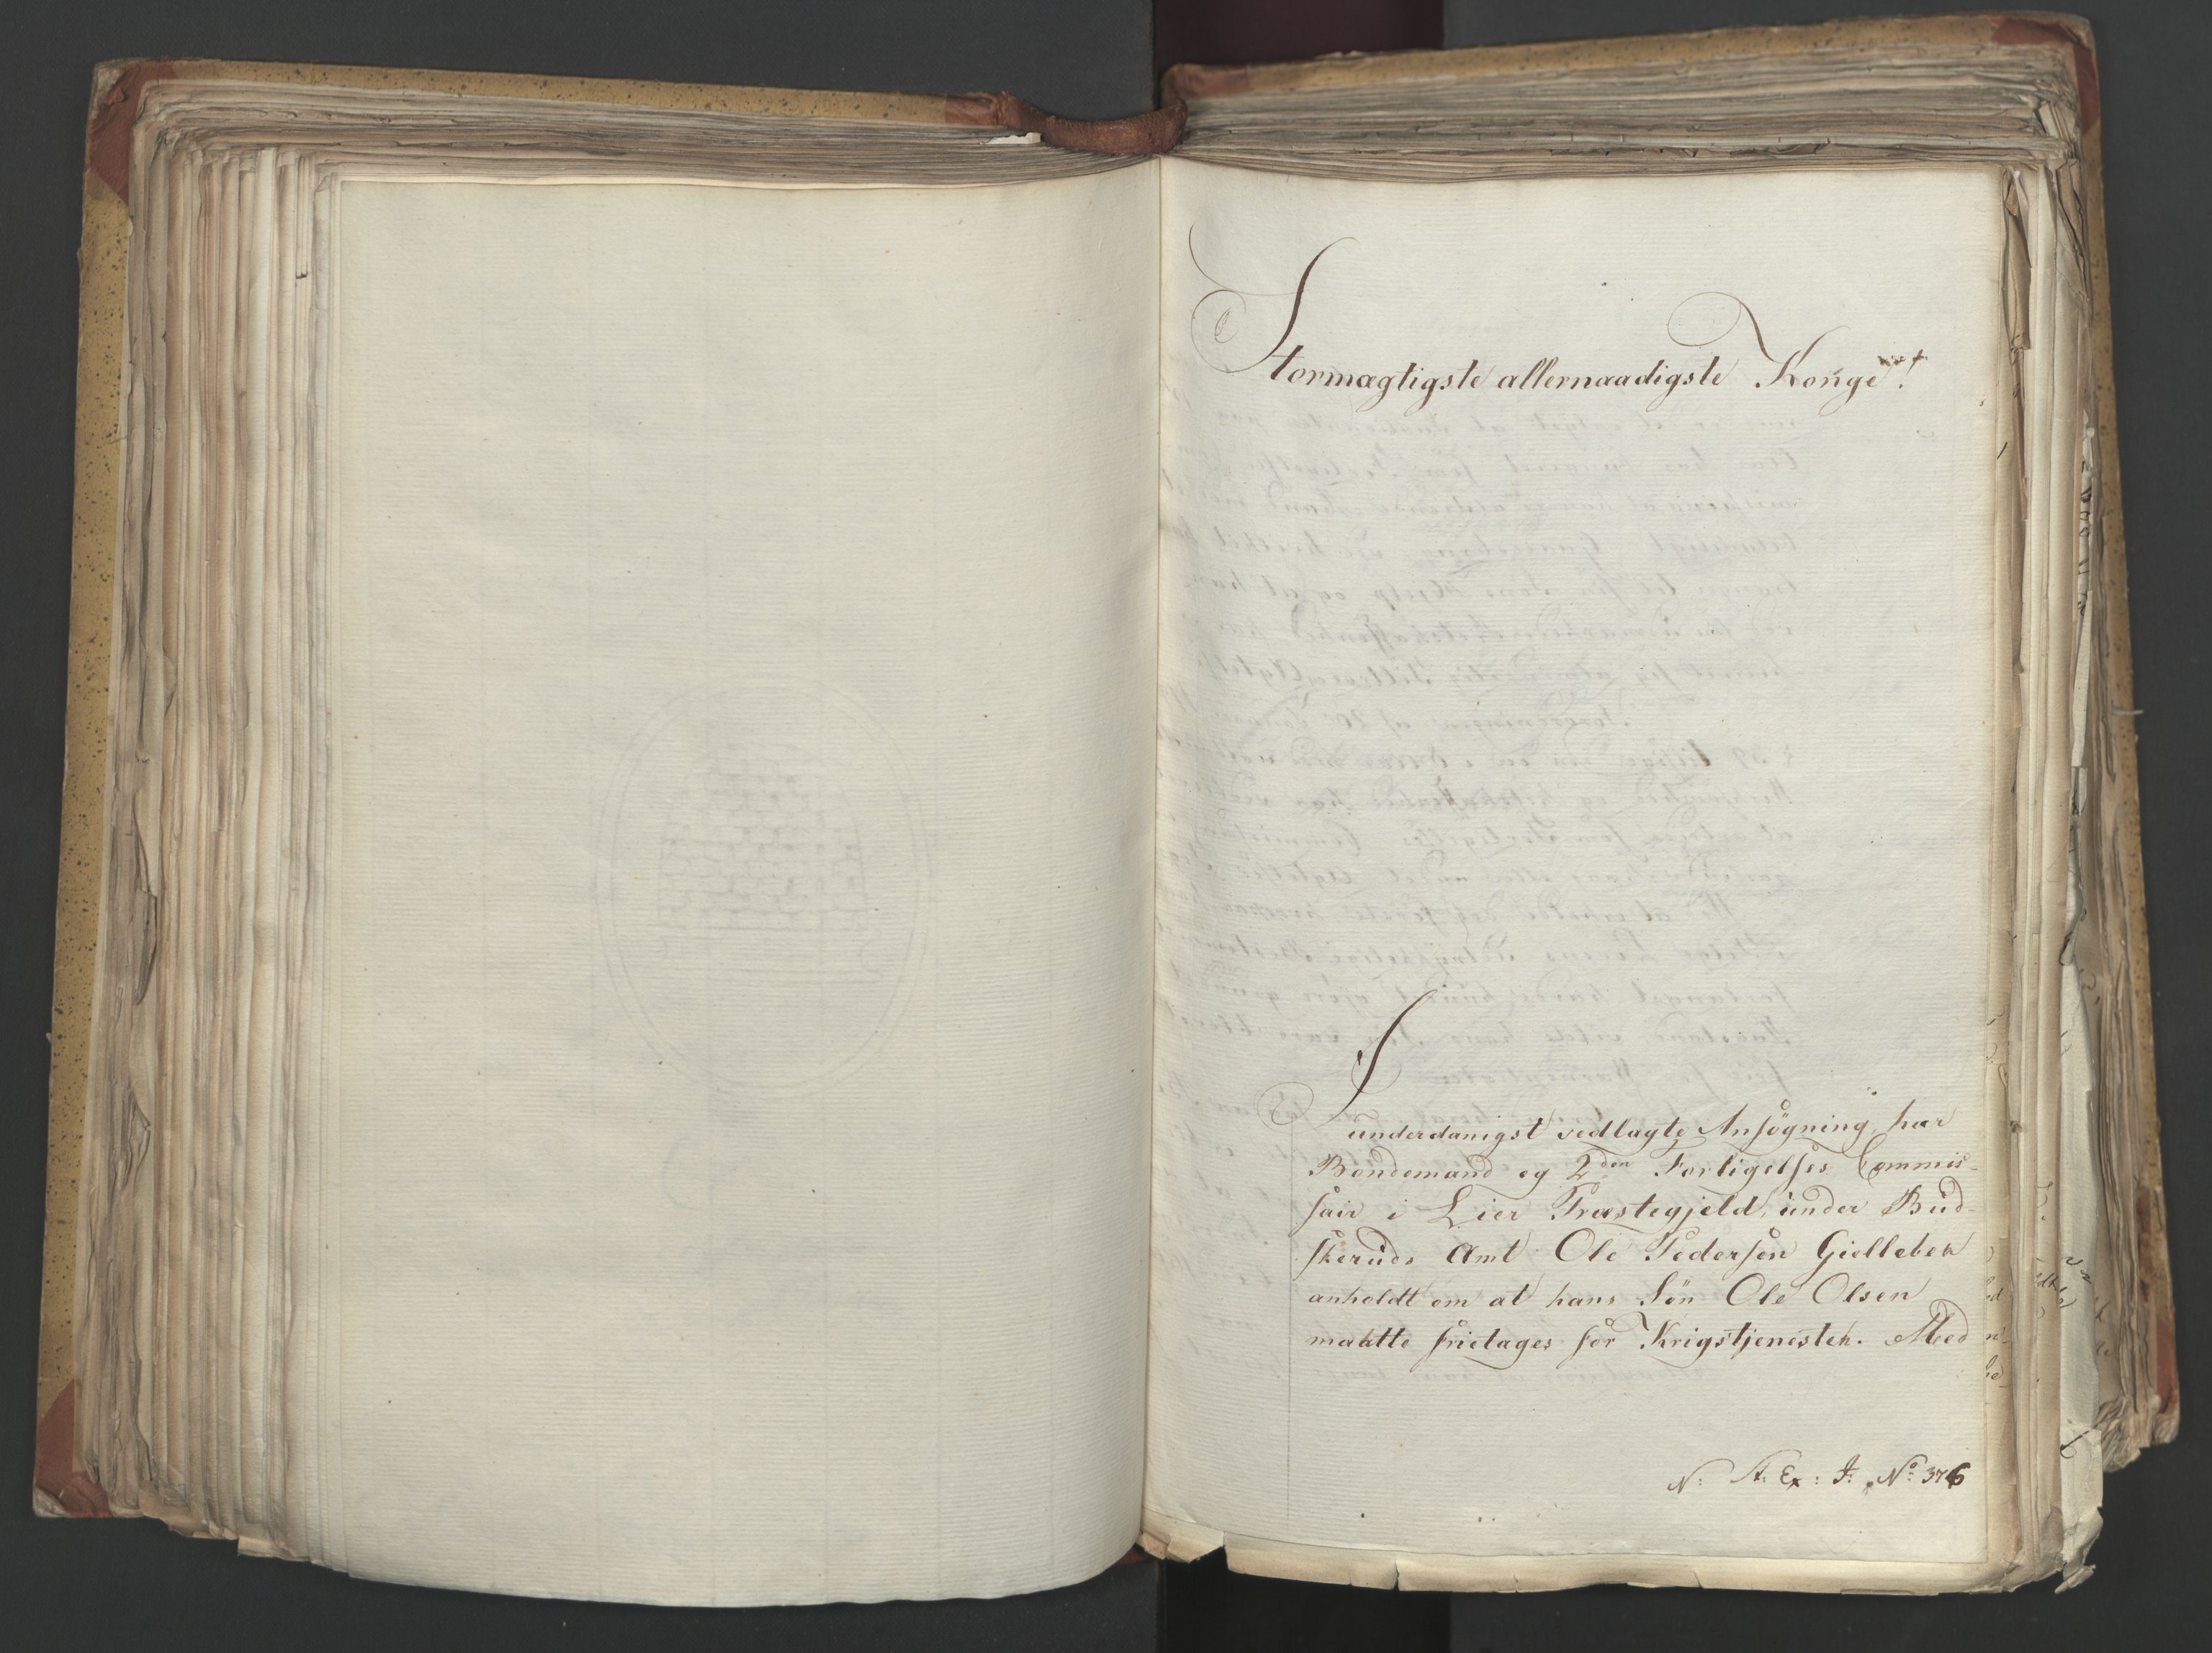 Stormægtigste allernaadigste Konge!
I
underdanigst vedlagte Ansögning har
Bondemand og 2den Forligelses Commis-
sair i Lier Præstegjeld, under Bud-
skeruds Amt Ole Pedersen Gjellebek
anholdt om at hans Sön Ole Olsen
maatte fritages for Krigstjenesten. Med
N: St: Ex: J: No: 376